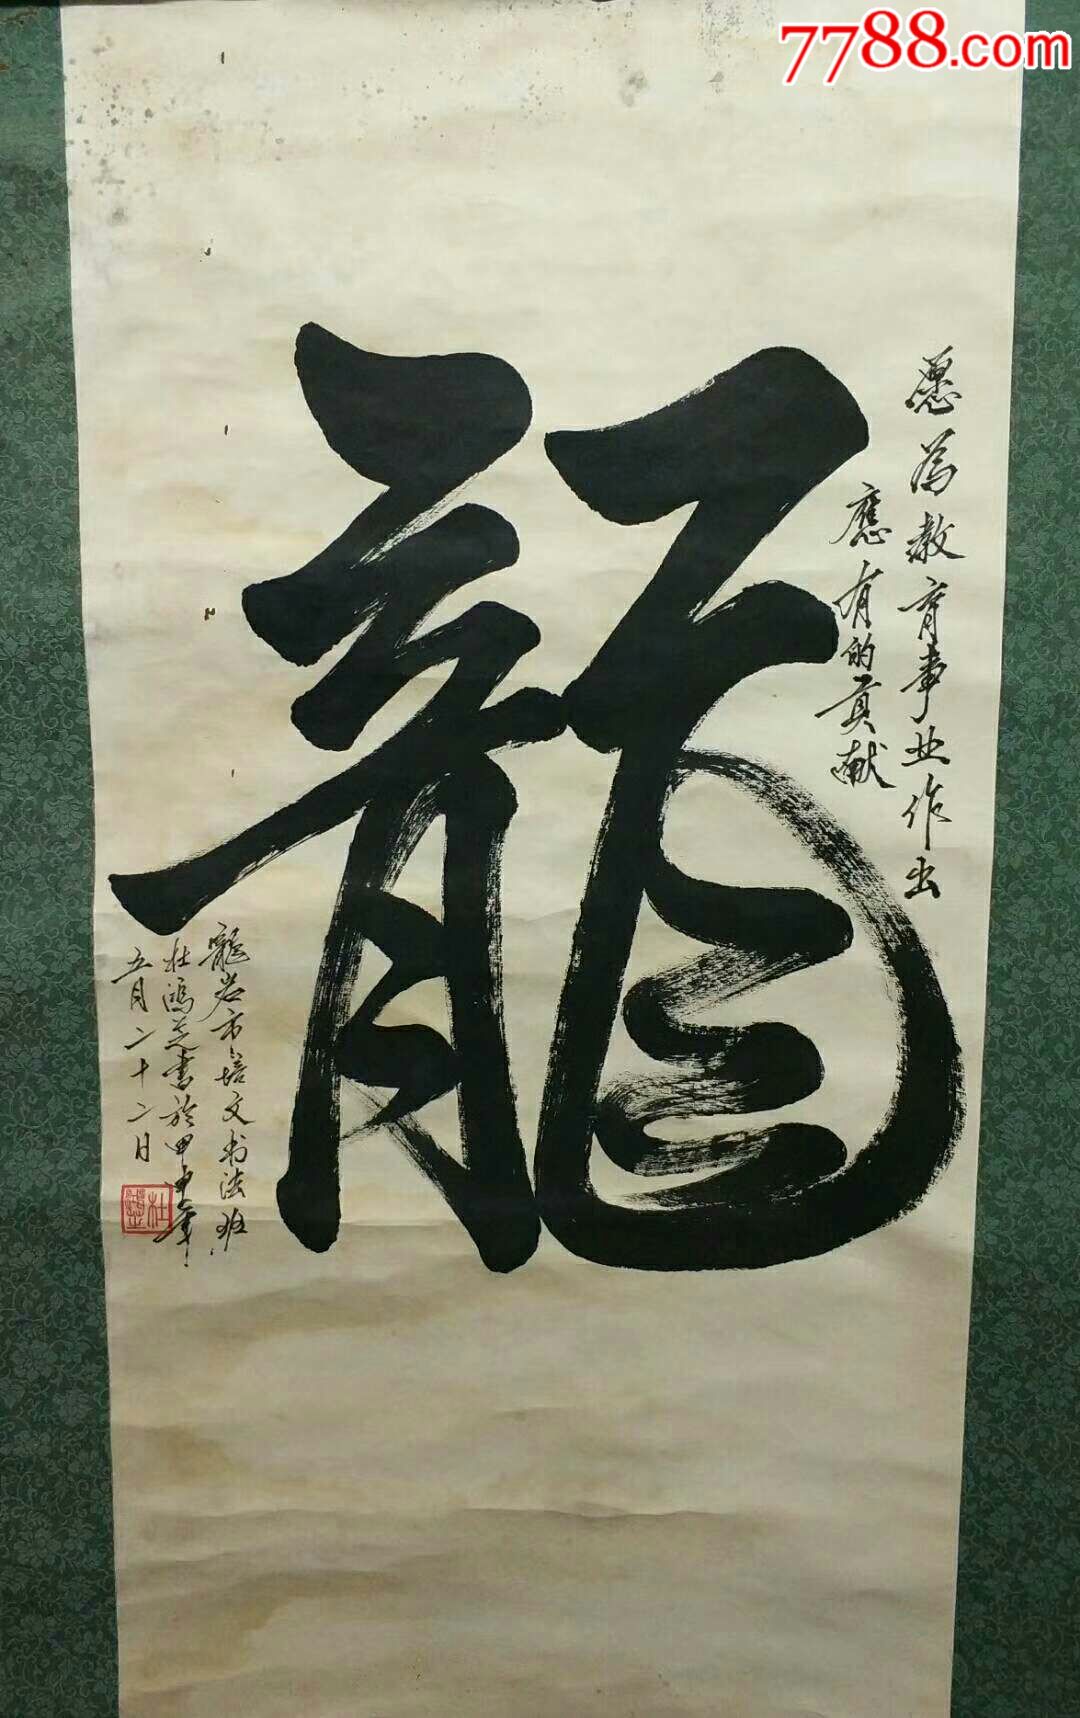 7788.com
愿為教育事业作出
應有的貢献
龍
龍岩市培文书法班
杜鴻芝書於甲申年
五月二十二日
杜